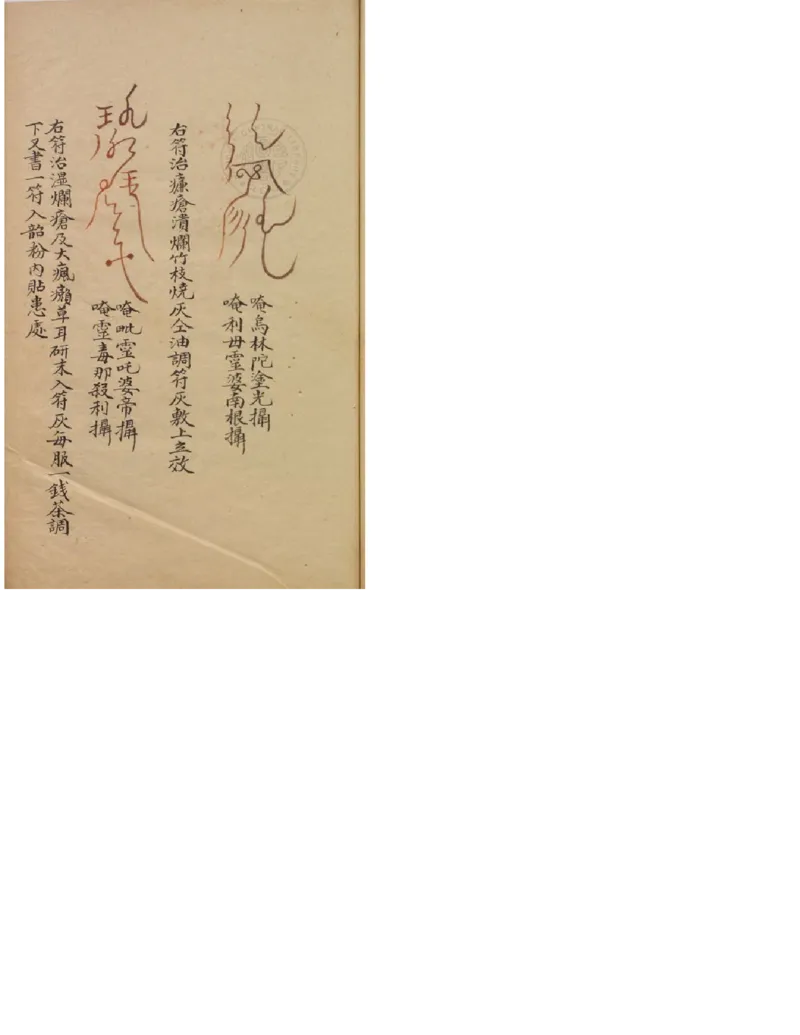 唵烏林陀塗光攝
唵利毋霊婆南根攝
右符治臁瘡潰爛竹枝焼灰仝油調符灰敷上立效
唵毗霊吒婆帝攝
唵霊毒那殺利攝
右符治濕爛瘡及大瘋癩草耳研末入符灰每服一錢茶調
下又書一符入韶粉內貼患處